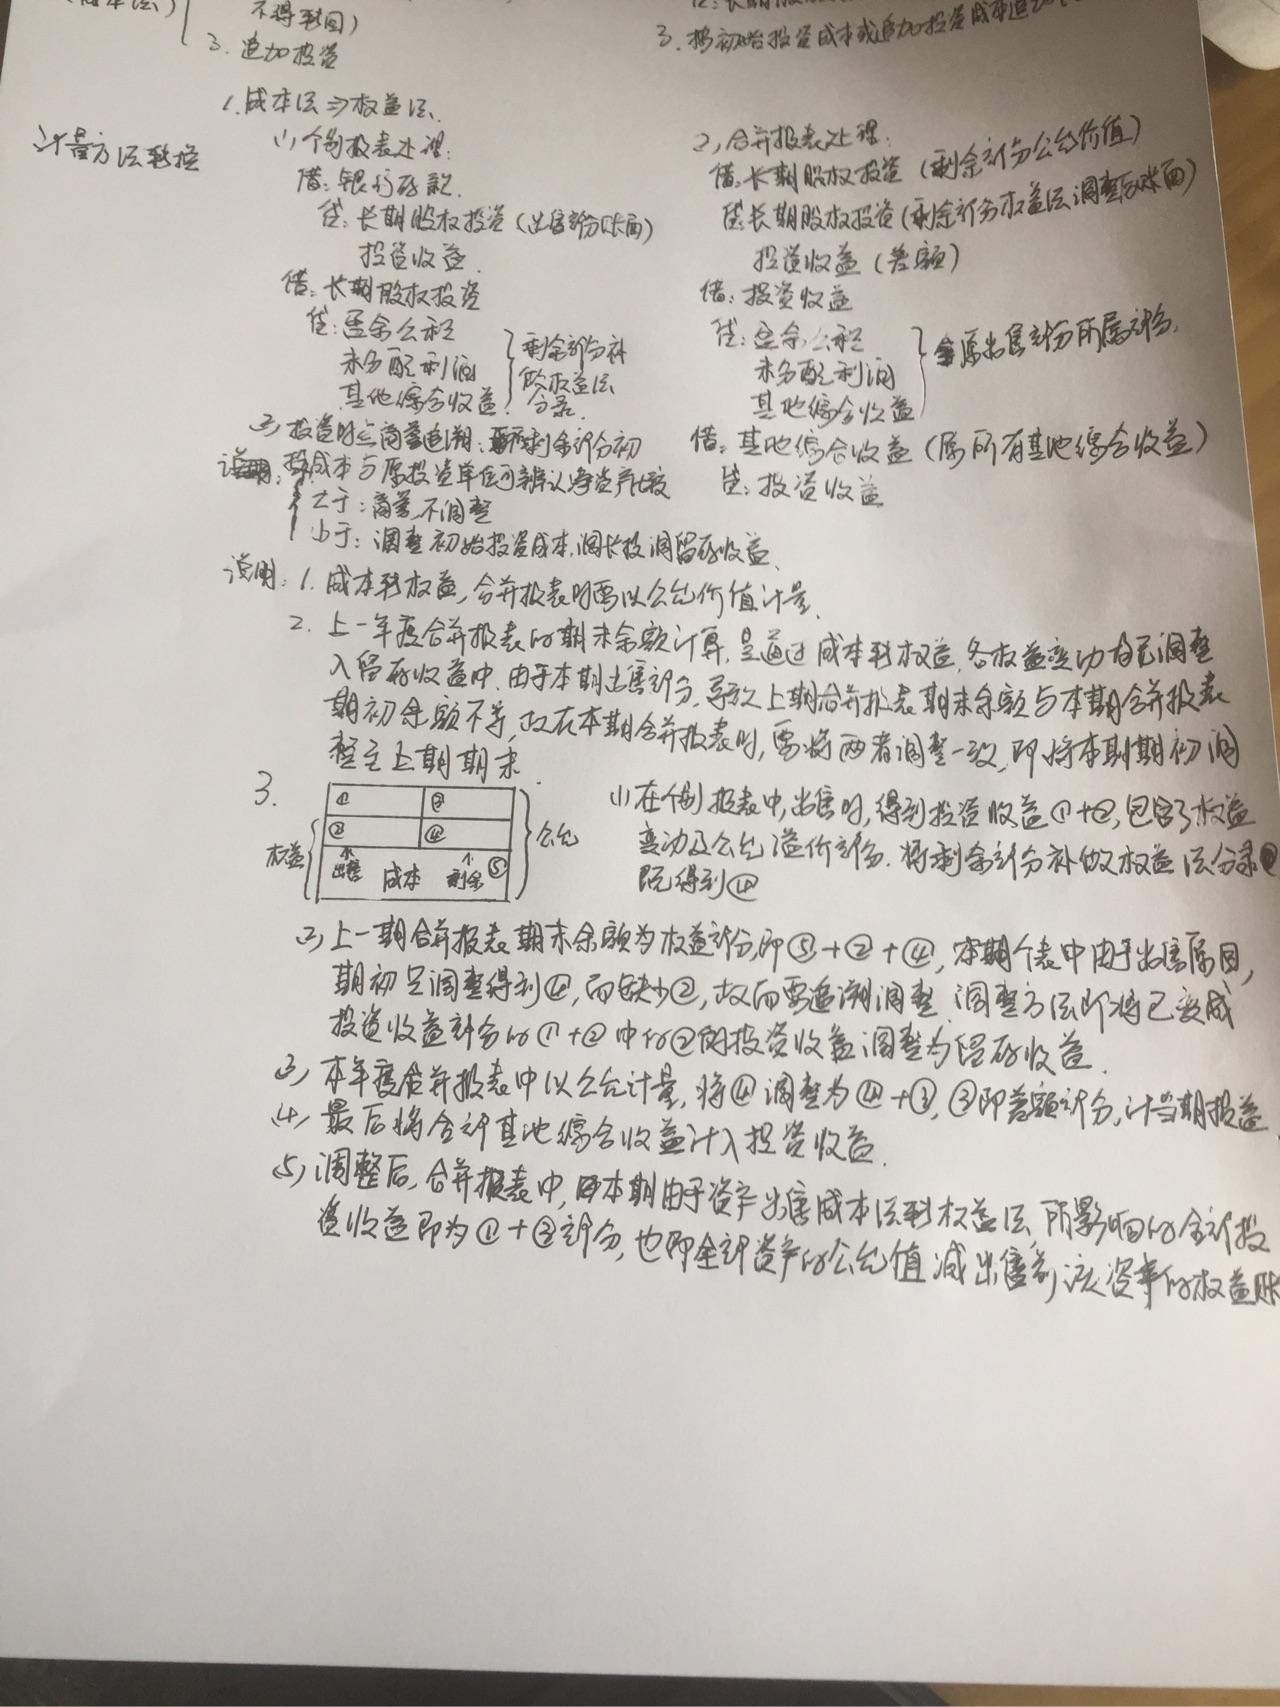 不得转回)
3. 追加投资
3. 按初始投资成本或追加投资成本
计量方法转换
1. 成本法⇒权益法.
(1) 个别报表处理:
借: 银行存款.
贷: 长期股权投资 (出售部分账面)
投资收益.
借: 长期股权投资
贷: 盈余公积
未分配利润
其他综合收益.
剩余部分补
做权益法
分录.
(2) 合并报表处理:
借: 长期股权投资 (剩余部分公允价值)
贷: 长期股权投资 (剩余部分权益法调整后账面)
投资收益 (差额)
借: 投资收益
贷: 盈余公积
未分配利润
其他综合收益
原出售部分所属部分.
借: 其他综合收益 (原所有其他综合收益)
贷: 投资收益
投资时点商誉追溯: 剩余部分初
说明: 投成本与原投资单位可辨认净资产比较
大于: 商誉,不调整
小于: 调整初始投资成本,调长投调留存收益.
说明: 1. 成本转权益, 合并报表时需以公允价值计量.
2. 上一年度合并报表的期末余额计算, 是通过成本转权益, 各权益变动均已调整
入留存收益中. 由于本期出售部分, 导致上期合并报表期末余额与本期合并报表
期初余额不等, 故在本期合并报表时, 需将两者调整一致, 即将本期期初调
整至上期期末.
3.
① ③
② ④
出售 成本 剩余 ⑤
权益
公允
(1) 在个别报表中, 出售时, 得到投资收益①+②, 包含了权益
变动及公允溢价部分. 将剩余部分补做权益法分录
既得到④
(2) 上一期合并报表期末余额为权益部分,即⑤+②+④, 本期个表中由于出售原因,
期初只调整得到④, 而缺少②, 故而要追溯调整. 调整方法即将已变成
投资收益部分的①+②中的②的投资收益调整为留存收益.
(3) 本年度合并报表中以公允计量, 将④调整为④+③, ③即差额部分, 计当期损益.
(4) 最后将合计其他综合收益计入投资收益.
(5) 调整后, 合并报表中, 本期由于资产出售成本法转权益法, 所影响的合计投
资收益即为①+③部分, 也即全部资产的公允值减出售前该资产的权益账